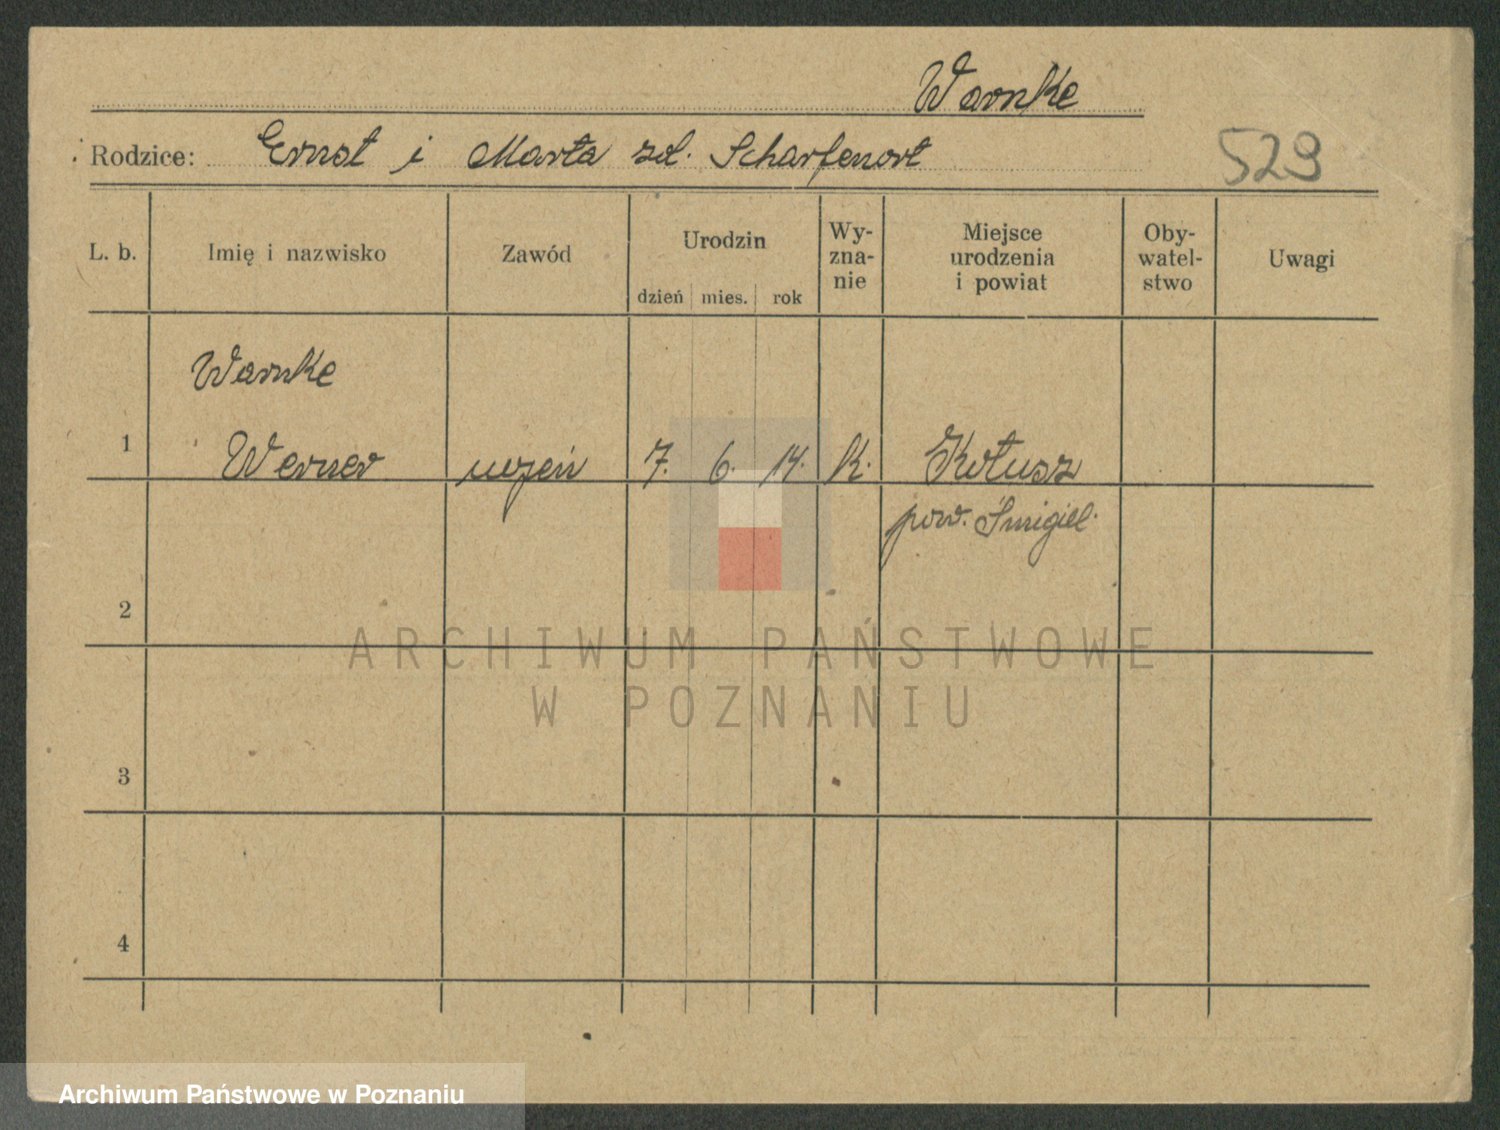 Warnke
Rodzice: Ernst i Marta zd. Scharfenort
529
L. b. Imię i nazwisko Zawód Urodzin dzień mies. rok Wy-zna-nie Miejsce urodzenia i powiat Oby-watel-stwo Uwagi
Warnke
1 Werner uczeń 7. 6. 14. k. Kotusz
pow. Śmigiel.
2
ARCHIWUM PAŃSTWOWE
W POZNANIU
3
4
Archiwum Państwowe w Poznaniu